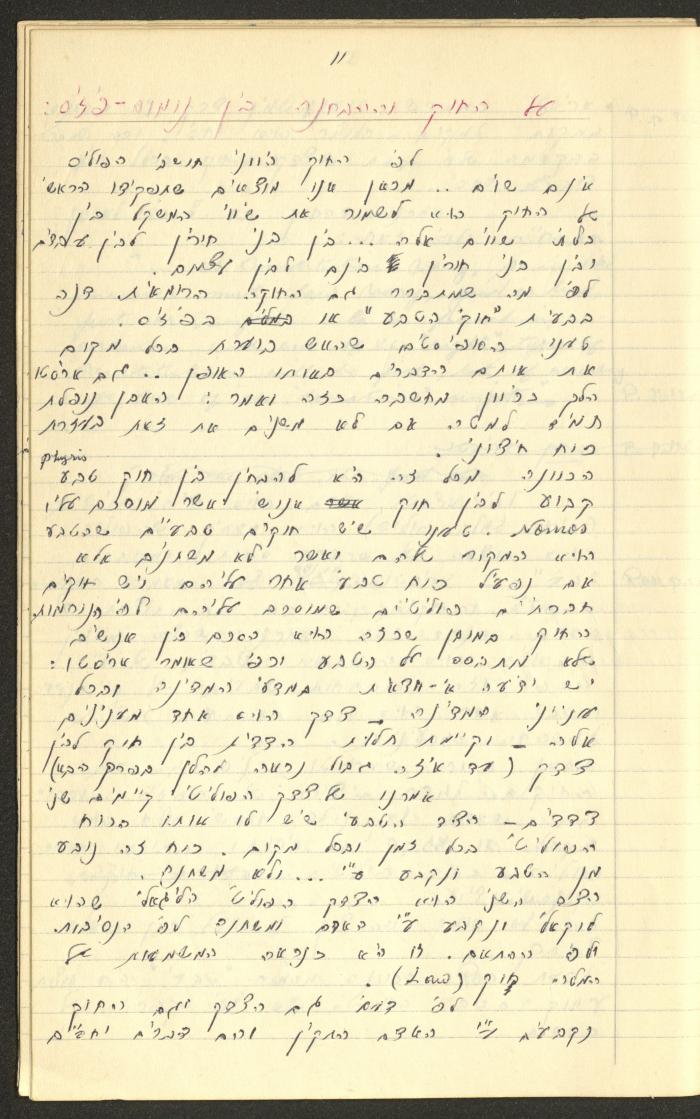 11
על החוק וההבחנה בין נומוס - פיזיס:
לפי החוק היווני חושבי הפוליס
אינם שוים .. מכאן אנו מוצאים שתפקידו הראשי
של החוק הוא לשמור את שיווי המשקל בין
בלתי שווים אלה ... בין בני חורין לבין עבדים
ובין בני חורין בינם לבין עצמם.
לפי מה שמתברר גם החוקה הרומאית דנה
בבעית "חוקי הטבע" או בפיזיס.
טעני הסופיסטים שהאש בוערת בכל מקום
את אותם הדברים באותו האופן .. גם אריסטו
הלך בכיוון מחשבה כזה ואמר: האבן נופלת
תמיד למטה אם לא משנים את זאת בעזרת
כוח חיצוני.
physis
הכוונה מכל זה היא להבחין בין חוק טבע
קבוע לבין חוק אנושי אשר מוסכם עליו
Nomos. טענו שיש חוקים טבעיים שהטבע
הוא המקור שלהם ואשר לא משתנים אלא
אם נפעיל כוח טבעי אחר עליהם ויש חוקים
חברתיים פוליטיים שמוסכם עליהם לפי הנורמות
החוק במובן שכזה הוא הסכם בין אנשים
שלא מתבסס על הטבע וכפי שאומר אריסטו:
יש ידיעה אי-ודאית במדעי המדינה ובכל
עניני המדינה - צדק הוא אחד מענינים
אלה - וקיימת תלות הדדית בין חוק לבין
צדק (עד איזה גבול נראה מהלך בפרק הבא)
אמרנו שלצדק הפוליטי קיימים שני
צדדים - הצד הטבעי שיש לו אותו הכוח
הפוליטי בכל זמן ובכל מקום. כוח זה נובע
מן הטבע ונקבע ע"י ... ולא משתנה.
הצד השני הוא הצדק הפוליטי הליגאלי שהוא
לוקאלי ונקבע ע"י האדם ומשתנה לפי הנסיבות
ולפי ההתאם. זו היא כנראה המשמעות של
המלה חוק (Law).
לפי גם הצדק וגם החוק
נקבעים ע"י האדם התקין והם דברים יחסיים